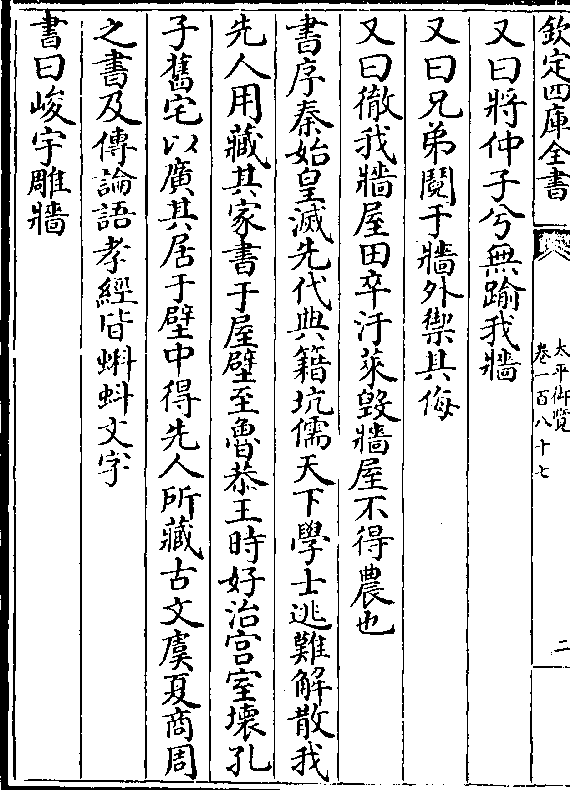 欽定四庫全書
太平御覽
卷一百八十七
二
又曰將仲子兮無踰我牆
又曰兄弟鬩于牆外禦其侮
又曰徹我牆屋田卒汙萊毀牆屋不得農也
書序秦始皇滅先代典籍坑儒天下學士逃難解散我
先人用藏其家書于屋壁至魯恭王時好治宫室壞孔
子舊宅以廣其居于壁中得先人所藏古文虞夏商周
之書及傳論語孝經皆蝌蚪文字
書曰峻宇雕牆